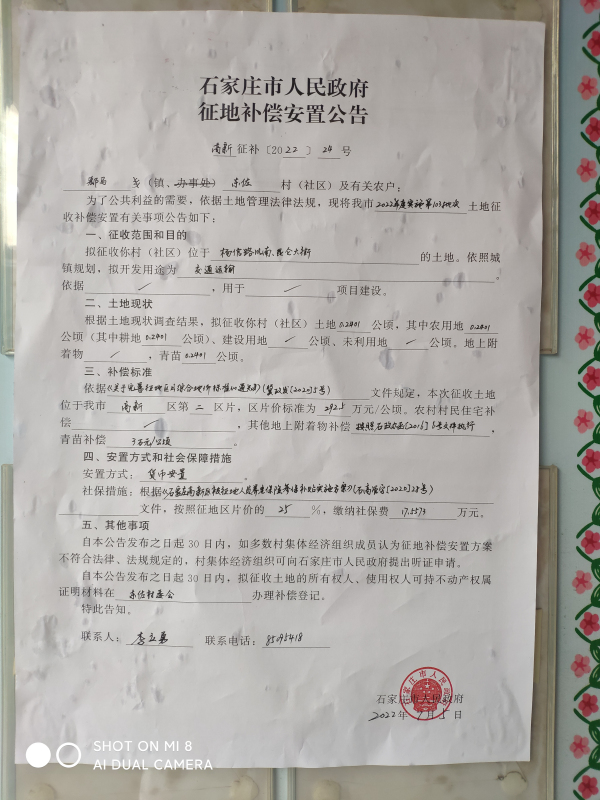 石家庄市人民政府
征地补偿安置公告
高新征补〔2022〕24号
郄马 乡(镇、办事处)东佐 村(社区)及有关农户:
为了公共利益的需要,依据土地管理法律法规,现将我市2022年度实施第103批次 土地征
收补偿安置有关事项公告如下:
一、征收范围和目的
拟征收你村(社区)位于 杨信路以南、昆仑大街 的土地。依照城
镇规划,拟开发用途为 交通运输 。
依据 / ,用于 / 项目建设。
二、土地现状
根据土地现状调查结果,拟征收你村(社区)土地0.2401公顷,其中农用地0.2401
公顷(其中耕地0.2401公顷)、建设用地 / 公顷、未利用地 / 公顷。地上附
着物 / ,青苗0.2401公顷。
三、补偿标准
依据《关于完善征地区片综合地价标准的通知》(冀政发[2020]5号) 文件规定,本次征收土地
位于我市 高新 区第 二 区片,区片价标准为 292.5 万元/公顷。农村村民住宅补
偿 / ,其他地上附着物补偿 按照石政办函[2016] 号文件执行。
青苗补偿 3万元/公顷 。
四、安置方式和社会保障措施
安置方式: 货币安置
社保措施:根据《石家庄高新区被征地人员养老保险筹集补贴实施方案》(石高管官[2020]28号)
文件,按照征地区片价的 25 %,缴纳社保费 17.5573 万元。
五、其他事项
自本公告发布之日起 30 日内,如多数村集体经济组织成员认为征地补偿安置方案
不符合法律、法规规定的,村集体经济组织可向石家庄市人民政府提出听证申请。
自本公告发布之日起 30 日内,拟征收土地的所有权人、使用权人可持不动产权属
证明材料在 东佐村委会 办理补偿登记。
特此告知。
联系人: 李立 联系电话:85095418
石家庄市人民政府
2022年 月1日
SHOT ON MI 8
AI DUAL CAMERA